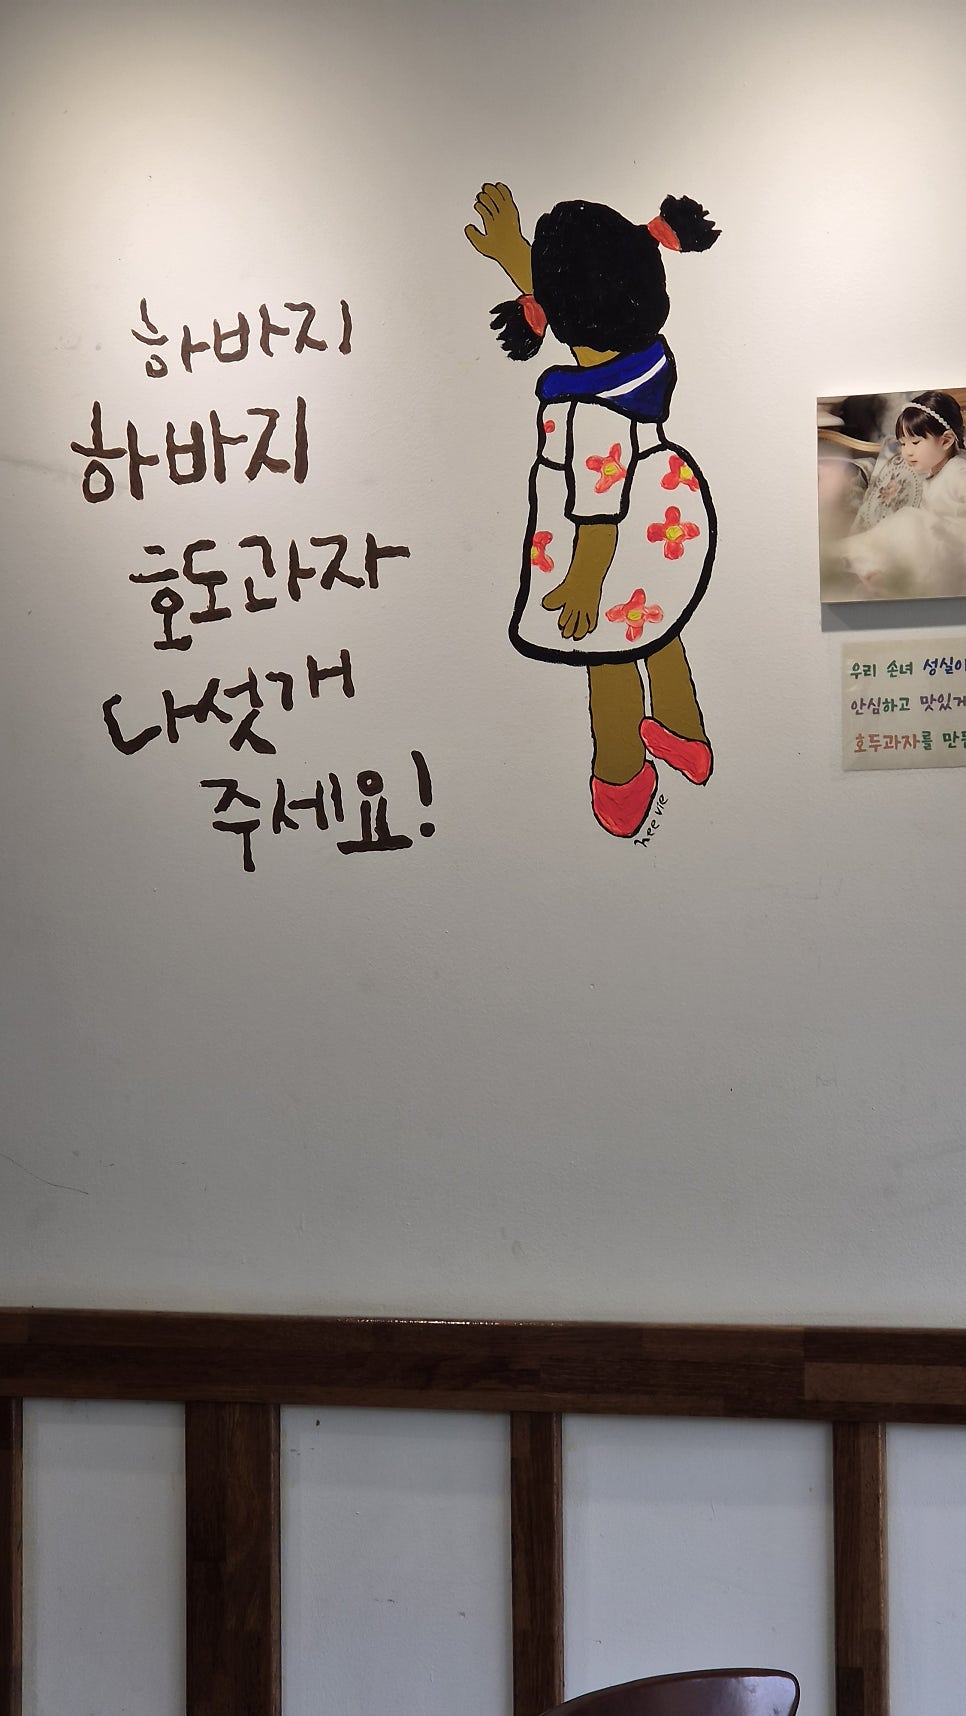 하바지
하바지
호도과자
다섯개
주세요!
hee vie
우리 손녀 성실이
안심하고 맛있게
호두과자를 만